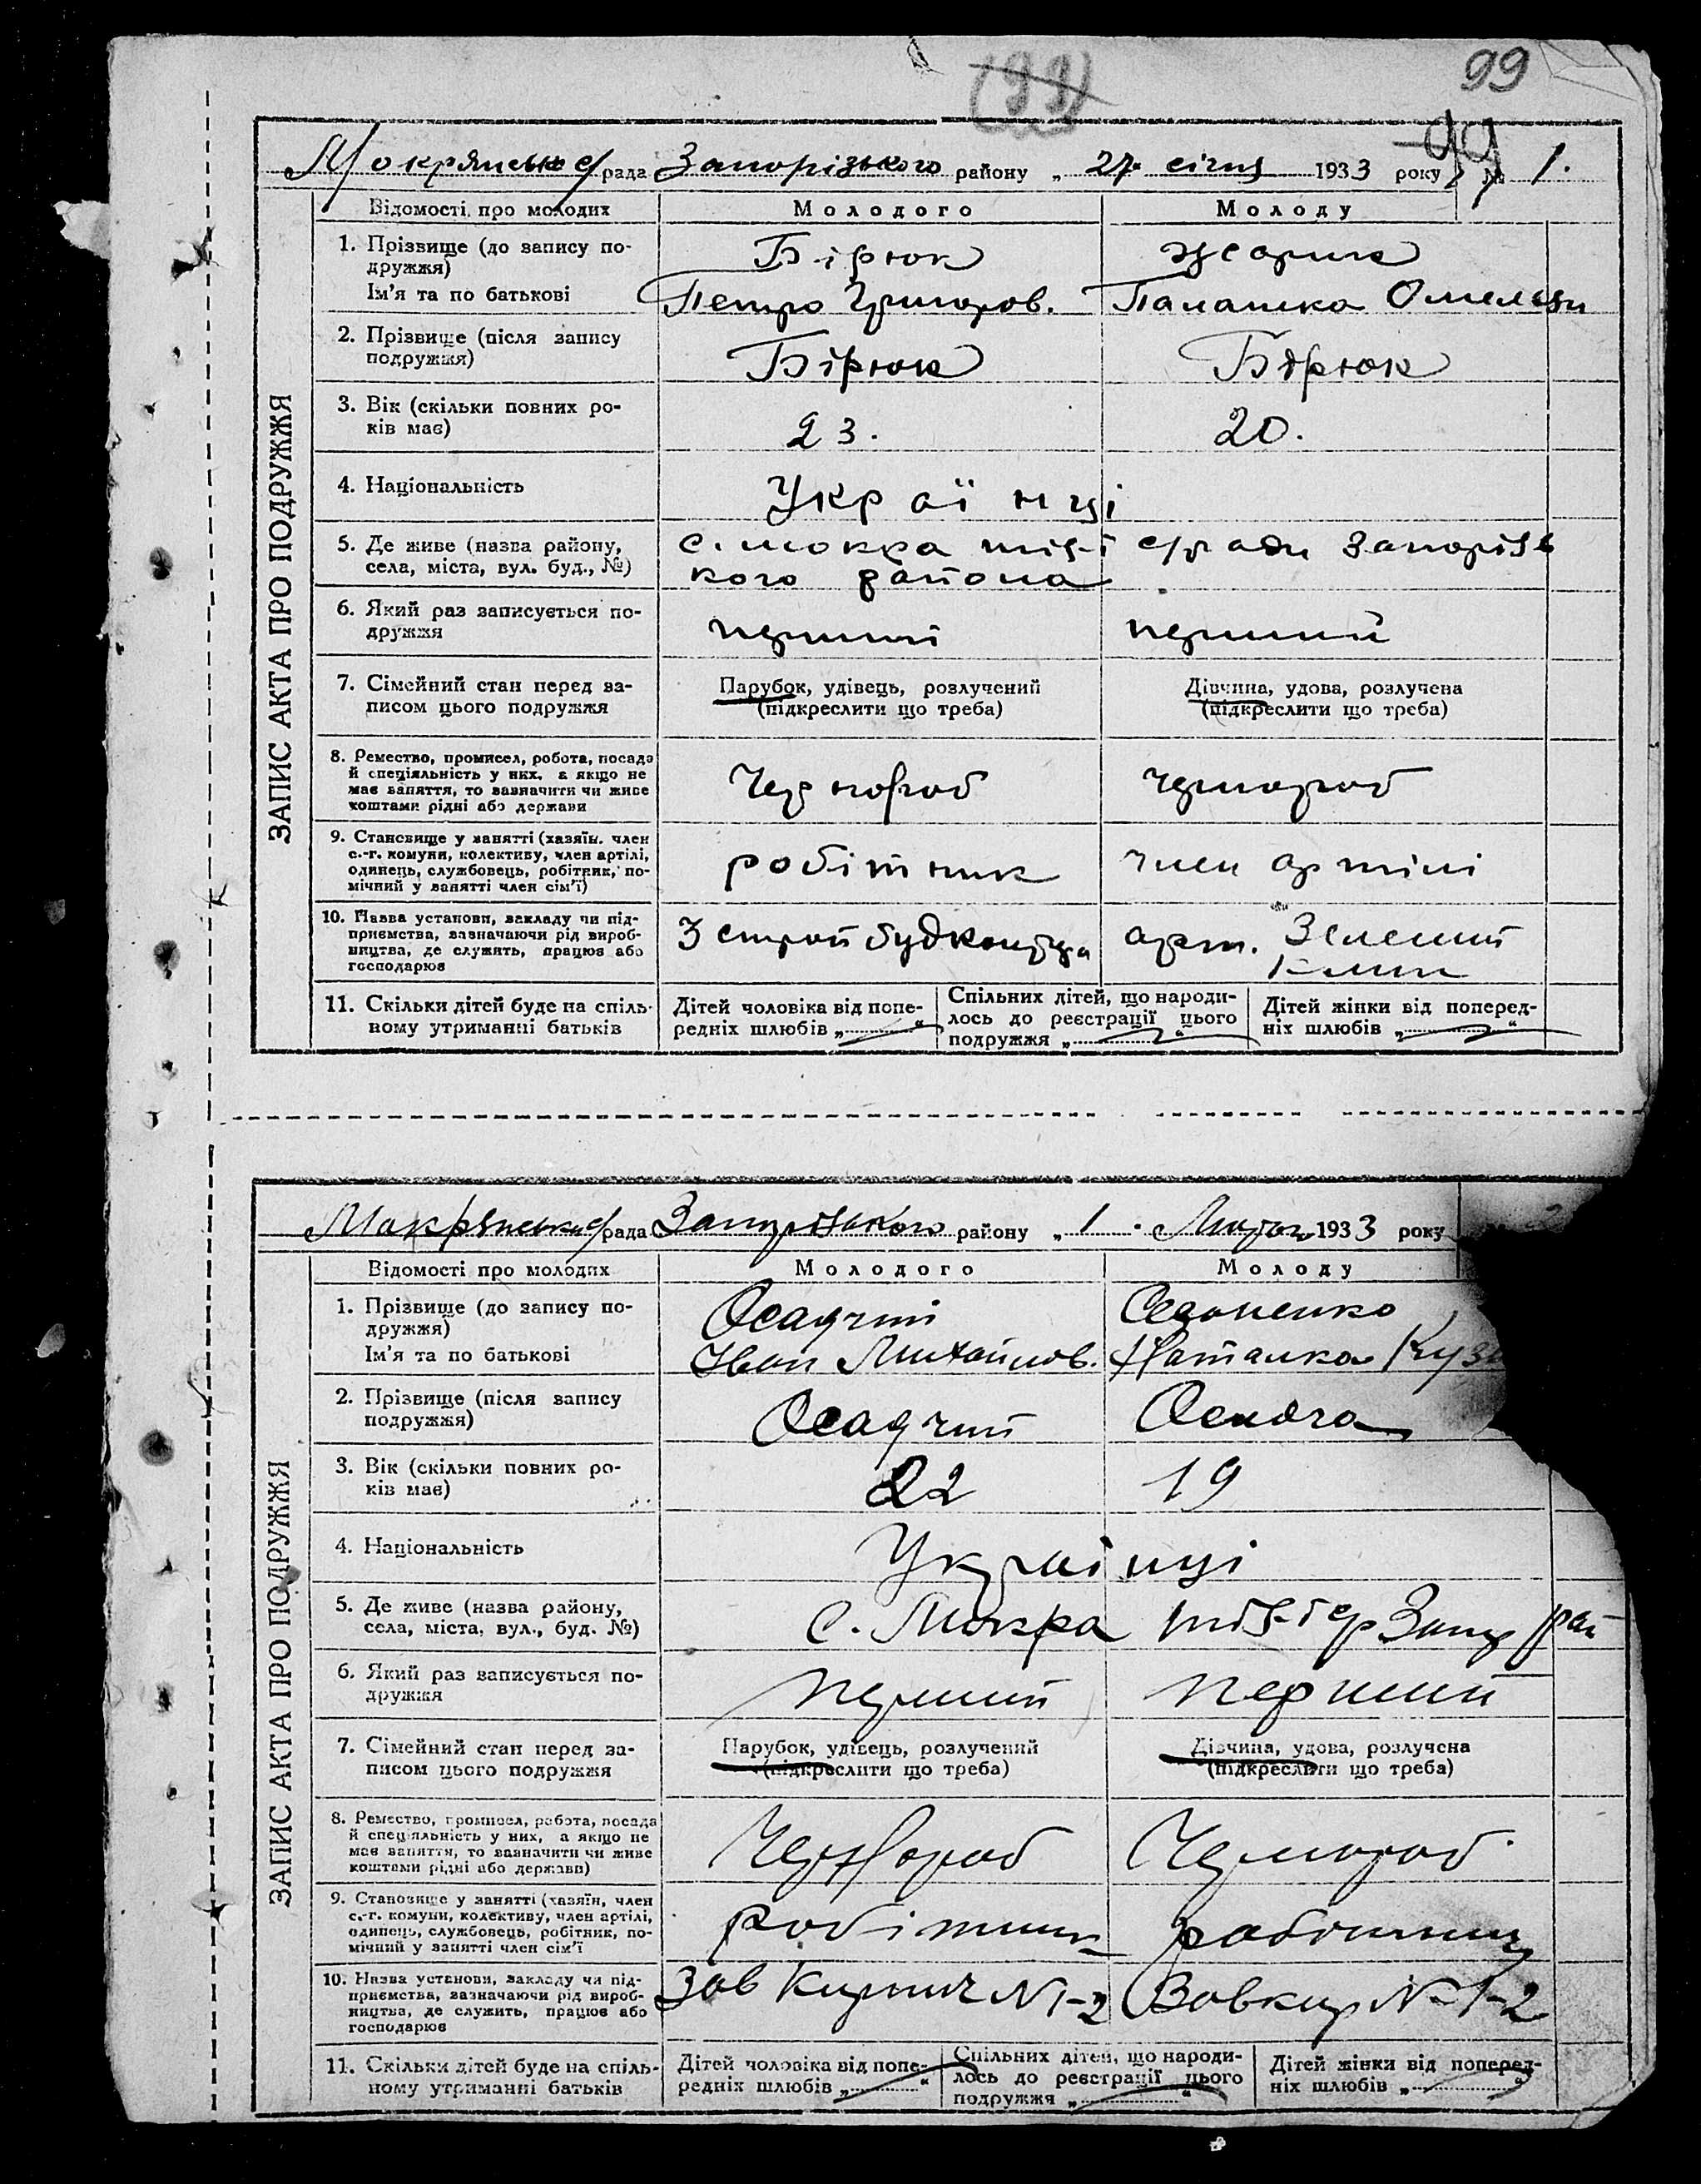 99
(99)
99
Мокрянська с/рада Запорізького району „ 27 січня 1933 року № 1.
ЗАПИС АКТА ПРО ПОДРУЖЖЯ
Відомості про молодих Молодого Молоду
1. Прізвище (до запису по-
дружжя) Бірюк
Ім'я та по батькові Петро Григоров. Палашка Омелян
2. Прізвище (після запису
подружжя) Бірюк Бірюк
3. Вік (скільки повних ро-
ків має) 23. 20.
4. Національність Українці
5. Де живе (назва району, с. Мокра тієї с/ради Запорізь
села, міста, вул. буд., №) кого района
6. Який раз записується по-
дружжя перший перший
7. Сімейний стан перед за- Парубок, удівець, розлучений Дівчина, удова, розлучена
писом цього подружжя (підкреслити що треба) (підкреслити що треба)
8. Ремество, промисел, робота, посада
й спеціяльність у них, а якщо не
має заняття, то зазначити чи живе Чернороб чернороб
коштами рідні або держави
9. Становище у занятті (хазяїн, член
с.-г. комуни, колективу, член артілі, робітник член артілі
одинець, службовець, робітник, по-
мічний у занятті член сім'ї)
10. Назва установи, закладу чи під-
приємства, зазначаючи рід вироб- арт. Зелений
ництва, де служить, працює або Клин
господарює
11. Скільки дітей буде на спіль- Дітей чоловіка від попе- Спільних дітей, що народи- Дітей жінки від поперед-
ному утриманні батьків редніх шлюбів „ “ лось до реєстрації цього ніх шлюбів „ “
подружжя „ “
Мокрянська с/рада Запорізького району „ 1 . Лютого 1933 року
ЗАПИС АКТА ПРО ПОДРУЖЖЯ
Відомості про молодих Молодого Молоду
1. Прізвище (до запису по- Осадчий
дружжя)
Ім'я та по батькові Іван Михайлов. Наталка Кузь
2. Прізвище (після запису
подружжя) Осадчий Осадча
3. Вік (скільки повних ро-
ків має) 22 19
4. Національність Українці
5. Де живе (назва району,
села, міста, вул., буд. №) с. Мокра тієї с/р Запор рай
6. Який раз записується по-
дружжя перший перший
7. Сімейний стан перед за- Парубок, удівець, розлучений Дівчина, удова, розлучена
писом цього подружжя (підкреслити що треба) (підкреслити що треба)
8. Ремество, промисел, робота, посада
й спеціяльність у них, а якщо не
має заняття, то зазначити чи живе Чернороб Чернороб
коштами рідні або держави)
9. Становище у занятті (хазяїн, член
с.-г. комуни, колективу, член артілі, робітник робітниц
одинець, службовець, робітник, по-
мічний у занятті член сім'ї
10. Назва установи, закладу чи під-
приємства, зазначаючи рід вироб- Зав Кирпич № 1-2 Завкир № 1-2
ництва, де служить, працює або
господарює
11. Скільки дітей буде на спіль- Дітей чоловіка від попе- Спільних дітей, що народи- Дітей жінки від поперед-
ному утриманні батьків редніх шлюбів „ “ лось до реєстрації цього ніх шлюбів „ “
подружжя „ “